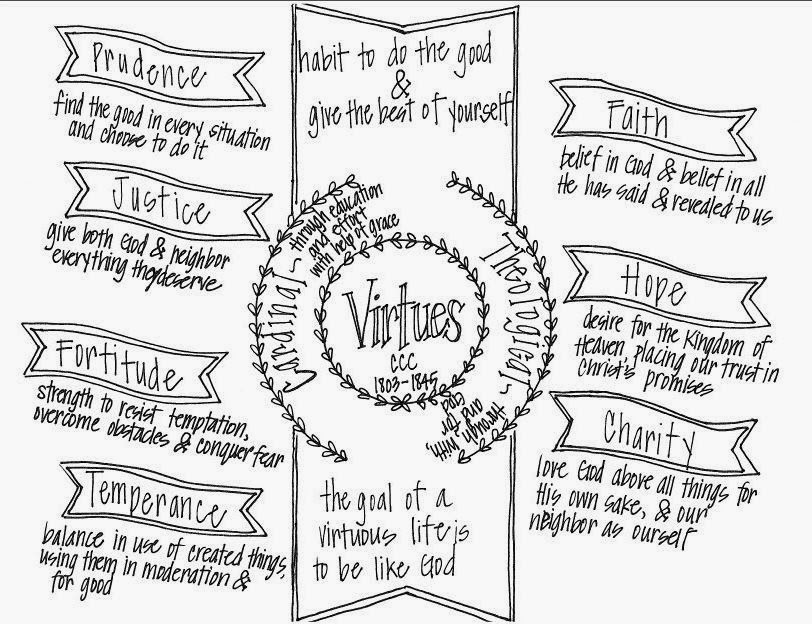 Prudence
find the good in every situation
and choose to do it
Justice
give both God & neighbor
everything they deserve
Fortitude
strength to resist temptation,
overcome obstacles & conquer fear
Temperance
balance in use of created things,
using them in moderation &
for good
habit to do the good
&
give the best of yourself
Cardinal ~ through education
and effort
with help of grace
Virtues
CCC
1803-1845
Theological ~ through, with,
and for
God
the goal of a
virtuous life is
to be like God
Faith
belief in God & belief in all
He has said & revealed to us
Hope
desire for the Kingdom of
Heaven, placing our trust in
Christ's promises
Charity
love God above all things for
His own sake, & our
neighbor as ourself